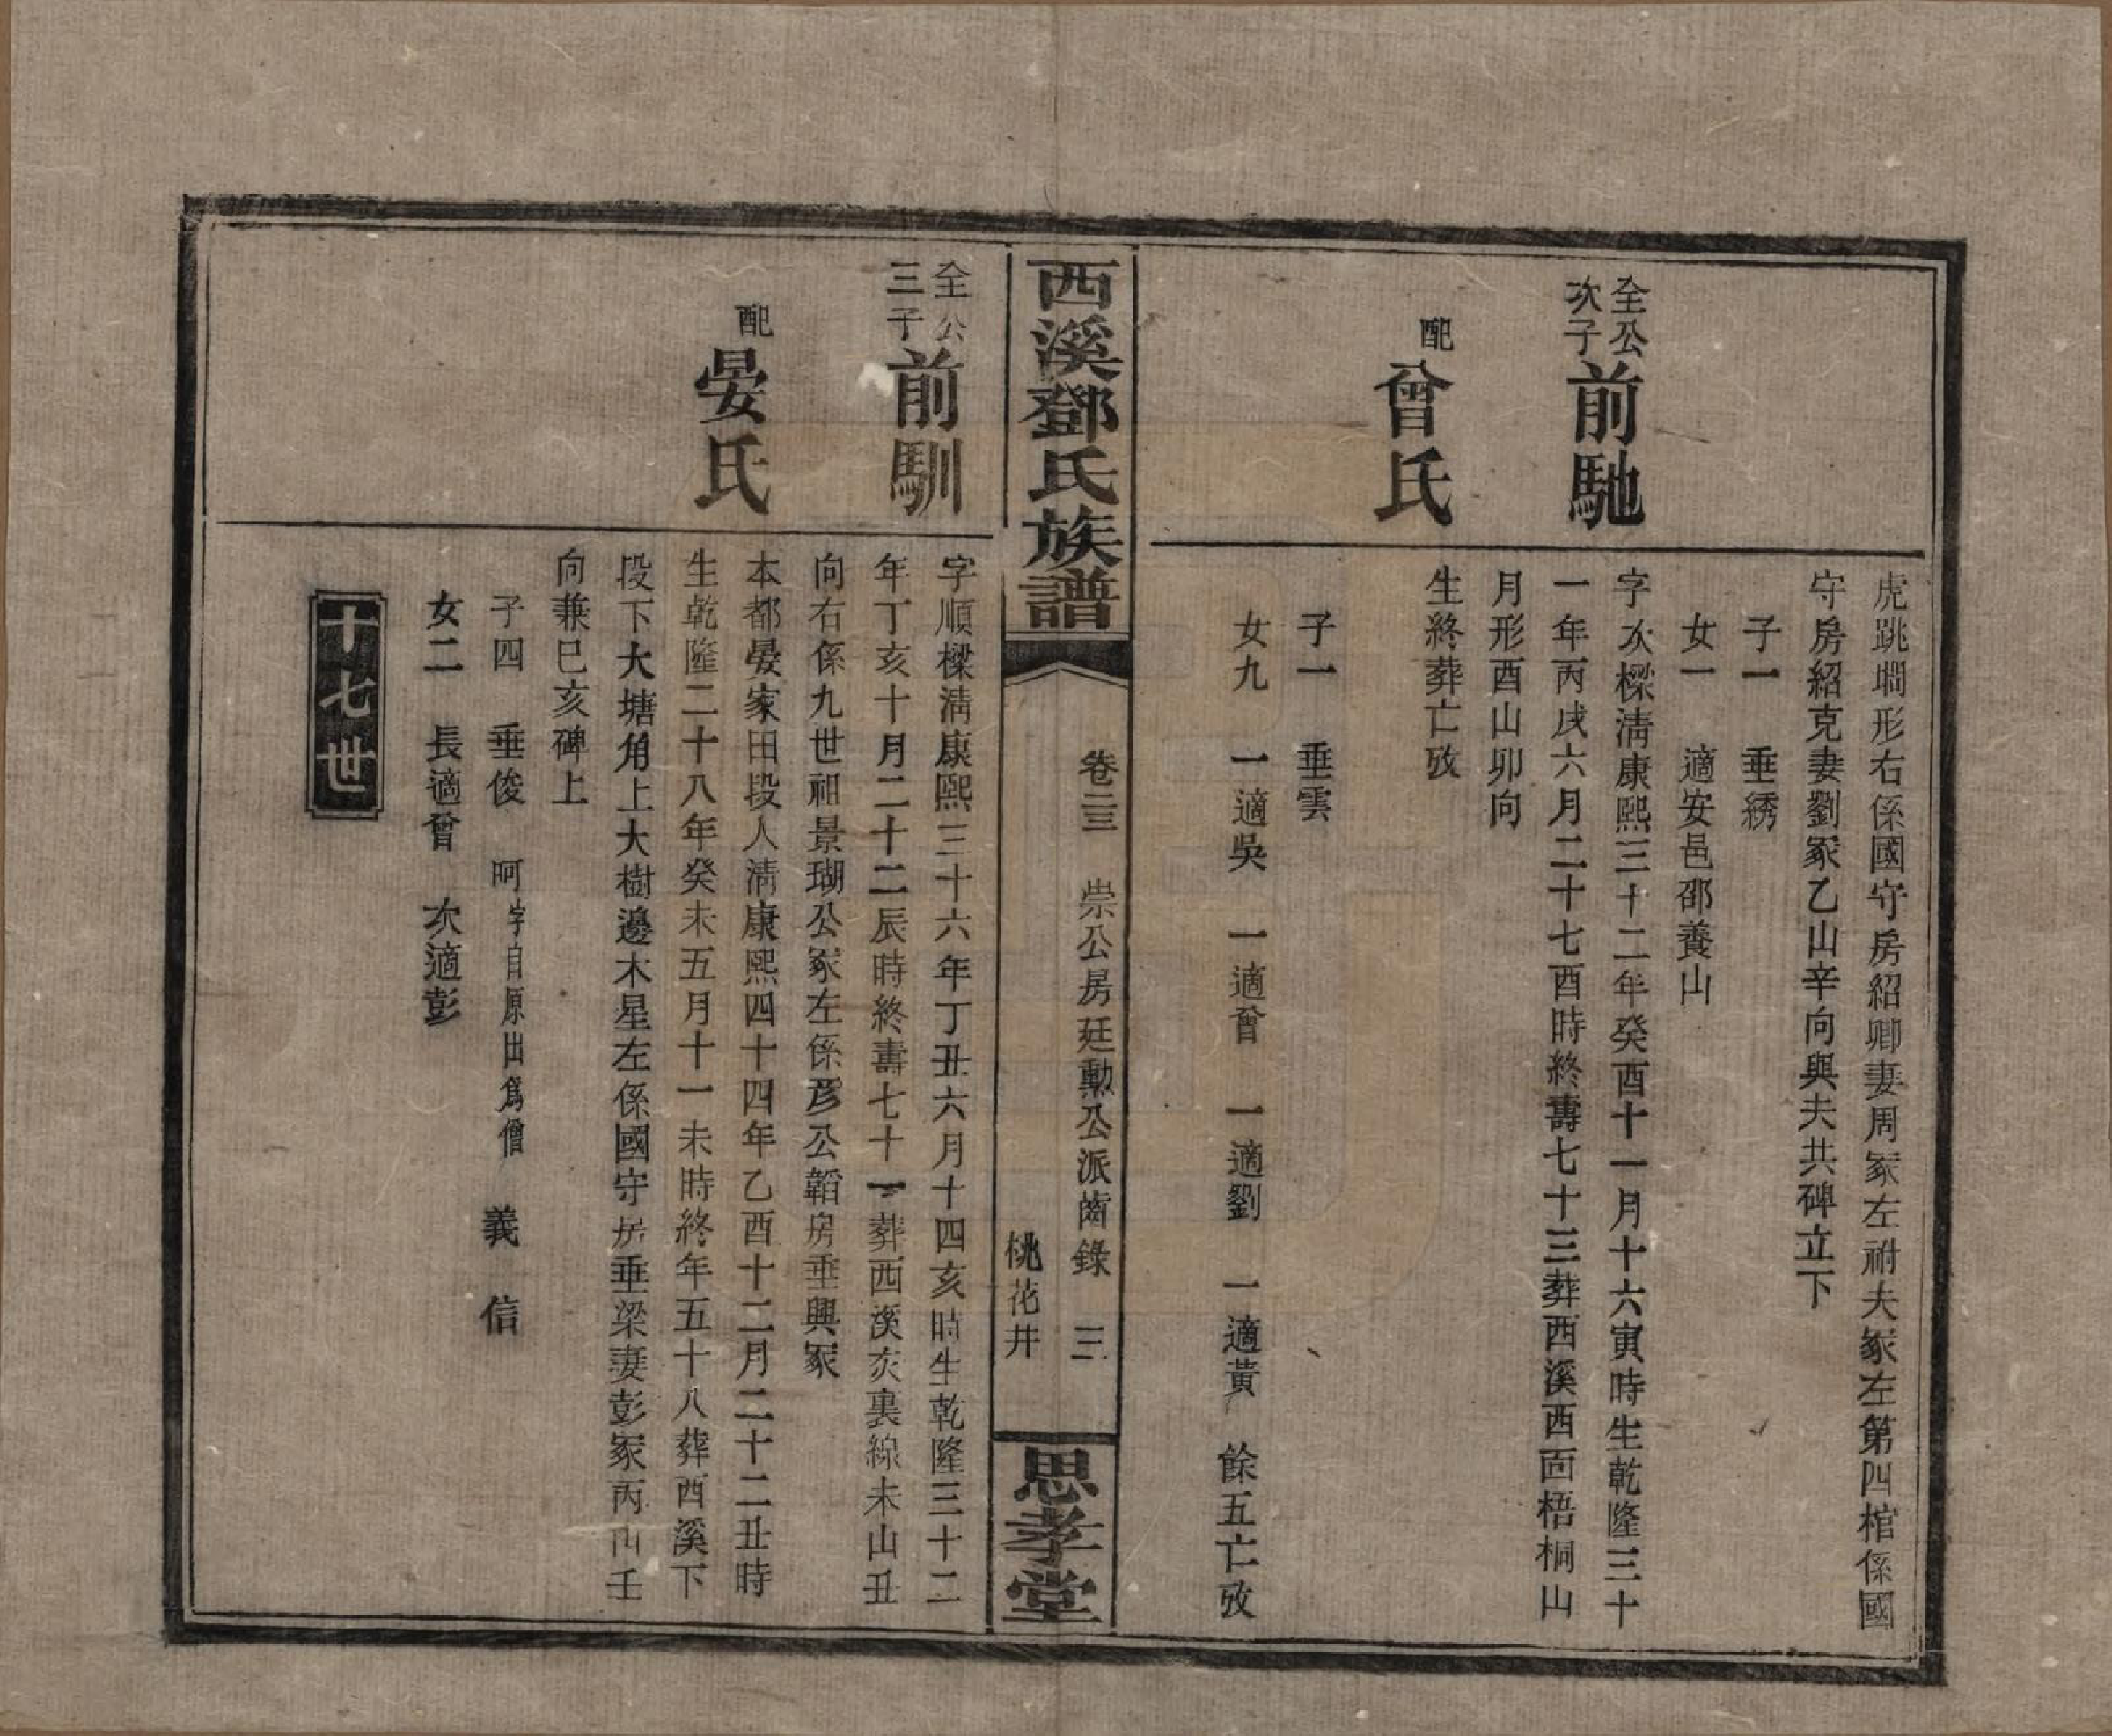 虎跳墹形右係國守房紹卿妻周冢左祔夫冢左第四棺係國
守房紹克妻劉冢乙山辛向與夫共碑立下
子一 垂綉
女一 適安邑邵養山
全公
次子
前馳
字次樑淸康熙三十二年癸酉十一月十六寅時生乾隆三十
一年丙戌六月二十七酉時終壽七十三葬西溪西面梧桐山
月形酉山卯向
配
曾氏
生終葬亡攷
子一 垂雲
女九 一適吳 一適曾 一適劉 一適黃 餘五亡攷
西溪鄧氏族譜
卷二三 崇公房廷勳公派齒錄 三
桃花井
思孝堂
全公
三子
前馴
字順樑淸康熙三十六年丁丑六月十四亥時生乾隆三十二
年丁亥十月二十二辰時終壽七十一葬西溪亥裏線未山丑
向右係九世祖景瑚公冢左係彦公韜房垂興冢
配
晏氏
本都晏家田段人淸康熙四十四年乙酉十二月二十二丑時
生乾隆二十八年癸未五月十一未時終年五十八葬西溪下
段下大塘角上大樹邊木星左係國守房垂梁妻彭冢丙山壬
向兼巳亥碑上
子四 垂俊 呵 字自原出爲僧 義 信
女二 長適曾 次適彭
十七世